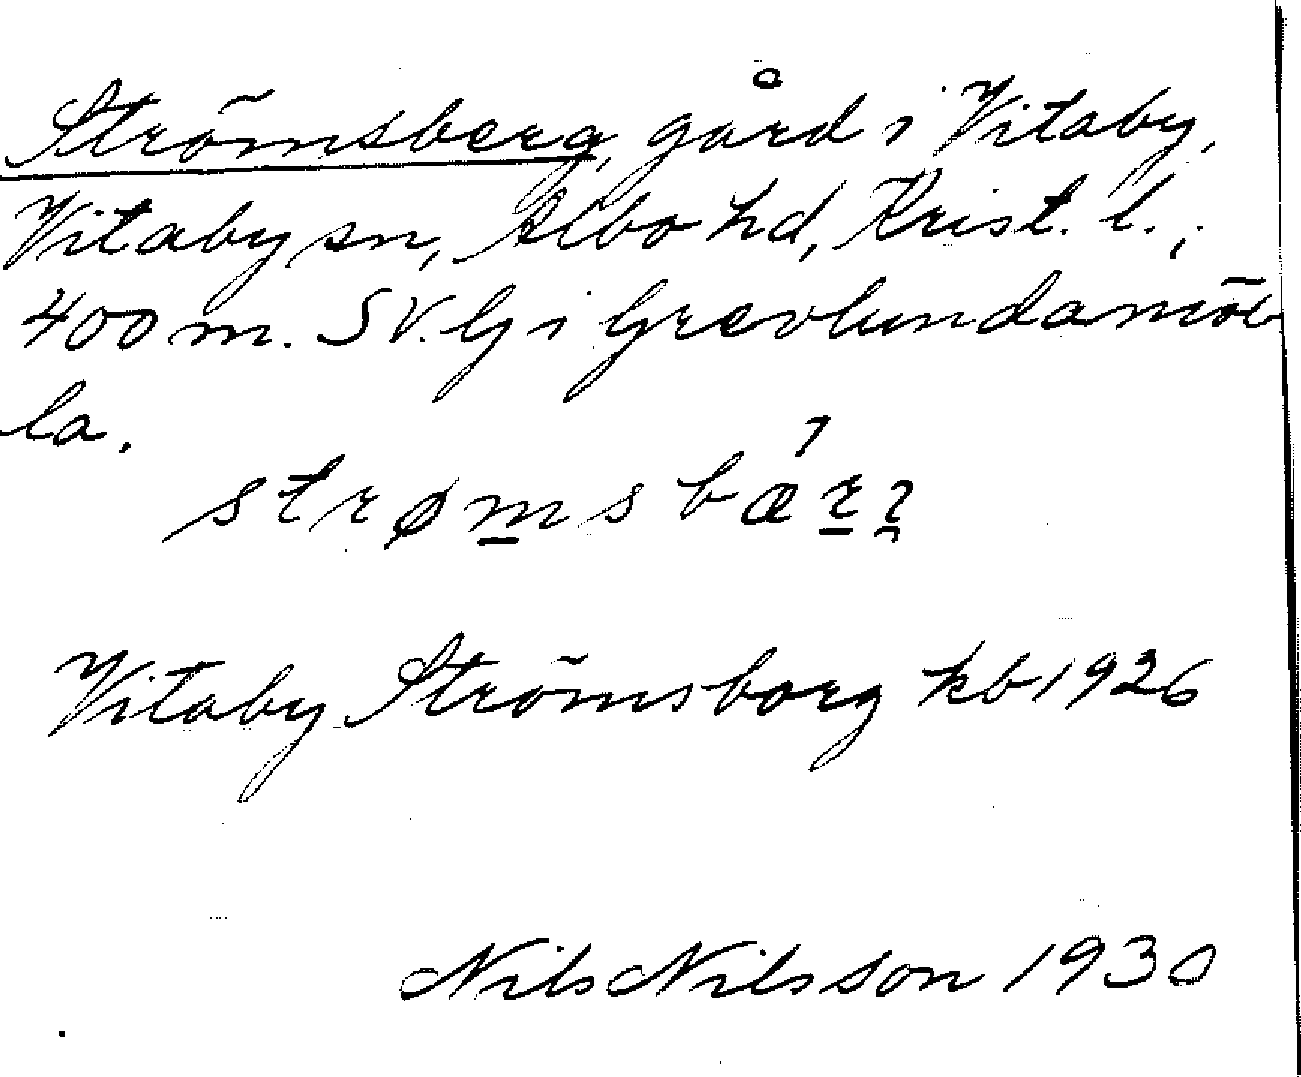 Strömsberg, gård i Vitaby,
Vitaby sn, Albo hd, Krist. l.,
400 m. SV. G i Grevlundamöl
la.
strømsbær
Vitaby Strömsborg kb 1926
Nils Nilsson 1930